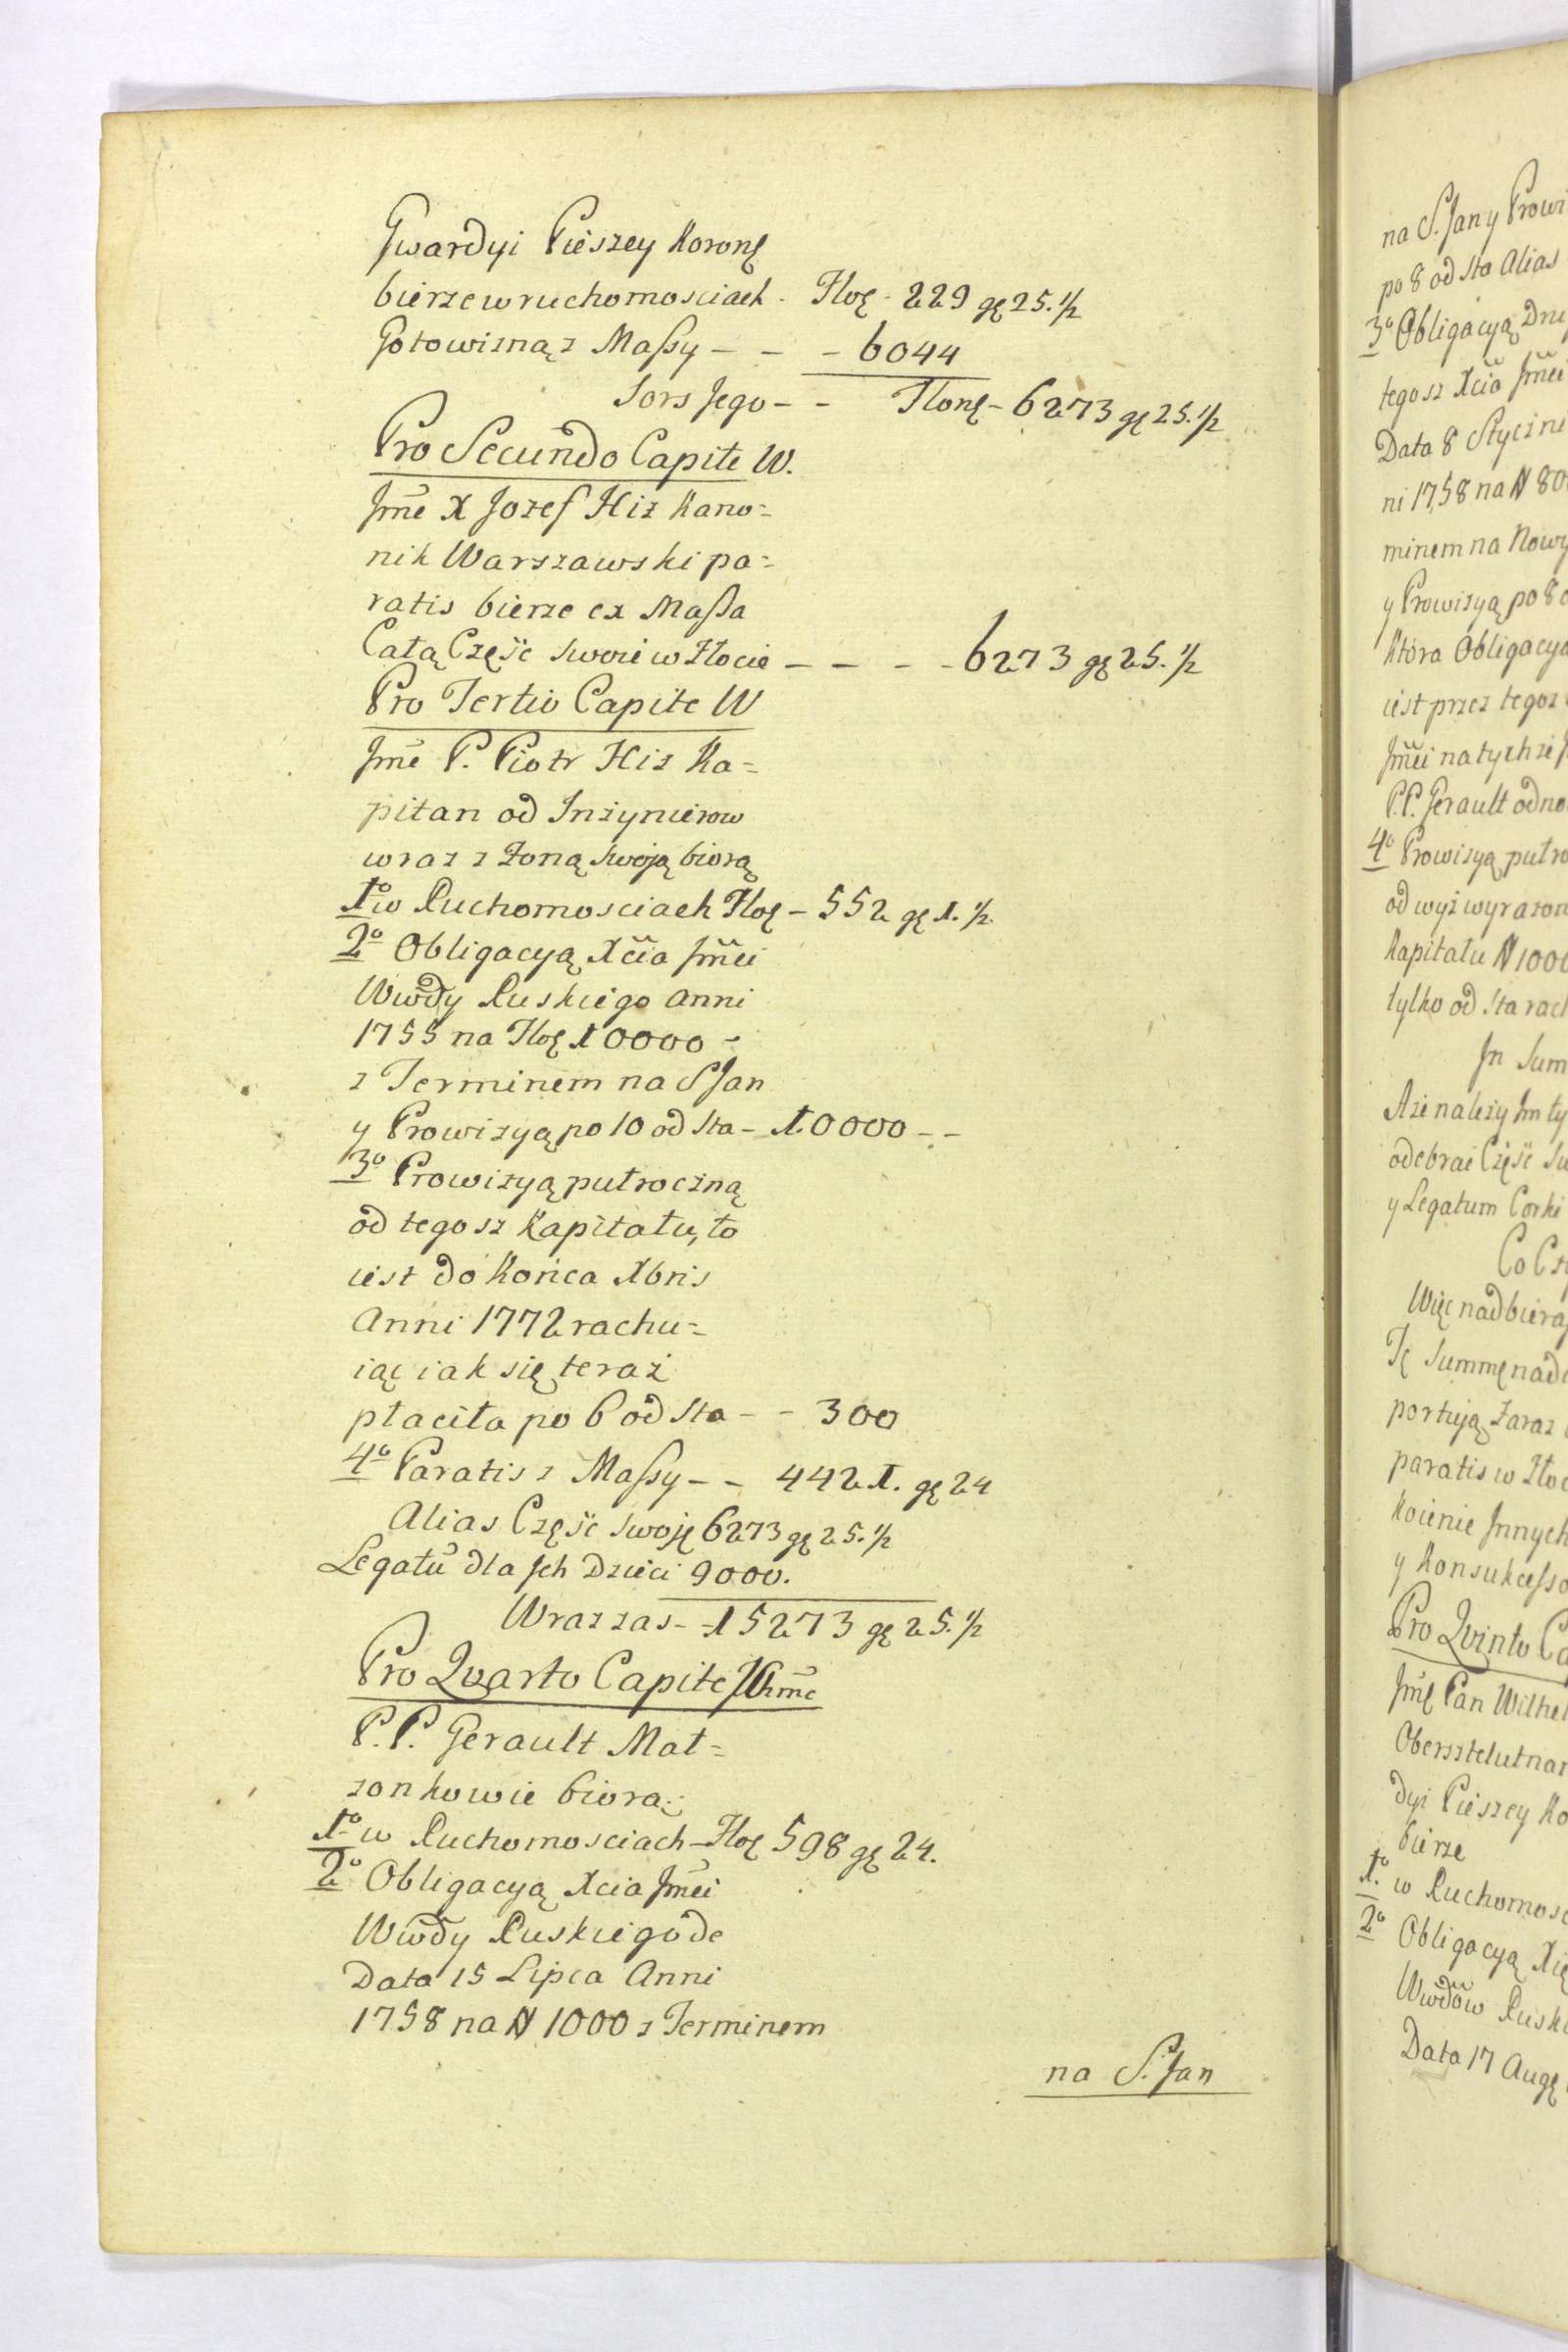 Gwardyi Pieszey Koronę
bierze w ruchomosciach - Złoę - 229 gę 25. 1/2
Gotowizną z Massy - - - 6044
Sors Jego - - Złonę - 6273 gę 25. 1/2
Pro Secundo Capite W.
Jmē X Jozef Hiz Kano=
nik Warszawski pa=
ratis bierze ex Massa
Całą Część swoię w Złocie - - - - 6273 gę 25. 1/2
Pro Tertio Capite W
Jmē P. Piotr Hiz Ka=
pitan od Inżynierow
wraz z Zoną swoją biorą
1º w Ruchomosciach Złoę - 552 gę 1. 1/2
2º Obligacyą Xcia Jmci
Wwdy Ruskiego Anni
1755 na Złoę 10000 -
z Terminem na S Jan
y Prowizyą po 10 od Sta - 10000 - -
3º Prowizyą pułroczną
od tegosz Kapitału, to
iest do Końca Xbris
Anni 1772 rachu=
iąc iak się teraz
płaciła po 6 od Sta - - 300
4º Paratis z Massy - - 4421. gę 24
Alias Część swoję 6273 gę 25. 1/2
Legatū dla Jch Dzieci 9000.
Wraz zas - - 15273 gę 25. 1/2
Pro Qvarto Capite WJmē
P.P. Gerault Mał=
zonkowie biorą:
1º w Ruchomosciach - Złoę 598 gę 24.
2º Obligacyą Xcia Jmci
Wwdy Ruskiego de
Data 15 Lipca Anni
1758 na # 1000 z Terminem
na S. Jan
na S. Jan y Prowi
po 8 od sta Alias
3º Obligacyą Dru
tegosz Xcia Jmci
Data 8 Stycznia
ni 1758 na # 80
minem na Nowy
y Prowizyą po 8 o
Która Obligacya
iest przez tegoz
Jmci na tychże J
P.P. Gerault odno
4º Prowizyą pułro
od wyż wyrazon
Kapitału # 1000
tylko od Sta rach
Jn Sum
Aże należy Jm ty
odebrać Część Sw
y Legatum Corki
Co Cz
Więc nadbiera
Tę Summę nad
portują Zaraz
paratis w Złoc
koienie Jnnych
y Konsukcesso
Pro Qvinto Ca
Jmę Pan Wilhel
Obersztelutnan
dyi Pieszey Ko
bierze
1º w Ruchomosc
2º Obligacyą Xię
Wwdow Rusk
Data 17 Augę